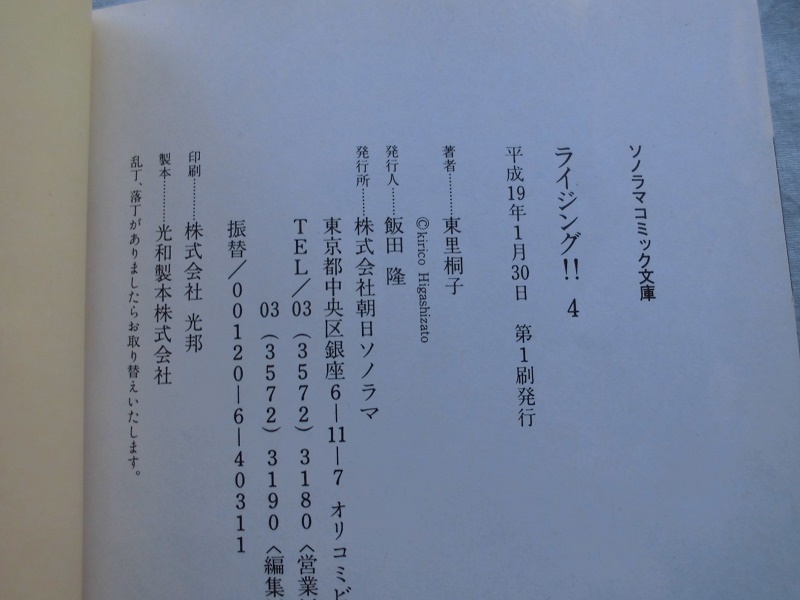 ソノラマコミック文庫
ライジング!! 4
平成19年1月30日 第1刷発行
著者………東里桐子
©kirico Higashizato
発行人……飯田 隆
発行所……株式会社朝日ソノラマ
東京都中央区銀座6―11―7 オリコミビ
TEL／03（3572）3180〈営業
03（3572）3190〈編集
振替／00120―6―40311
印刷………株式会社 光邦
製本………光和製本株式会社
乱丁、落丁がありましたらお取り替えいたします。